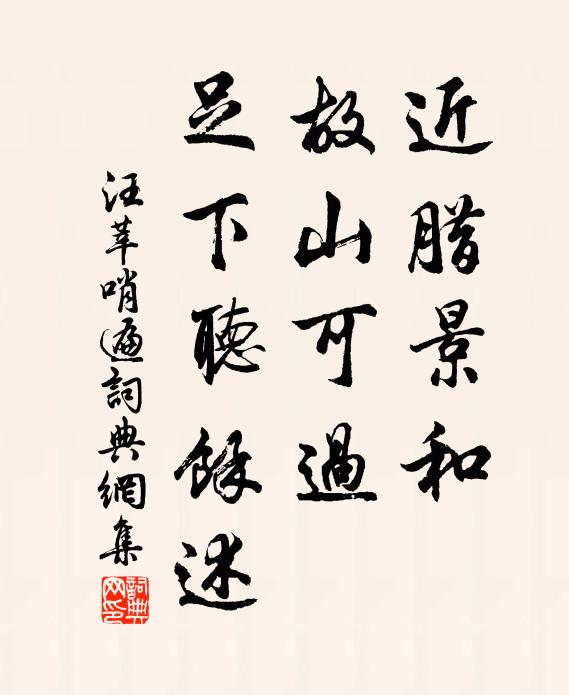 近腊景和
故山可過
足下聽餘述
汪莘哨遍詞典網集
詞典网印